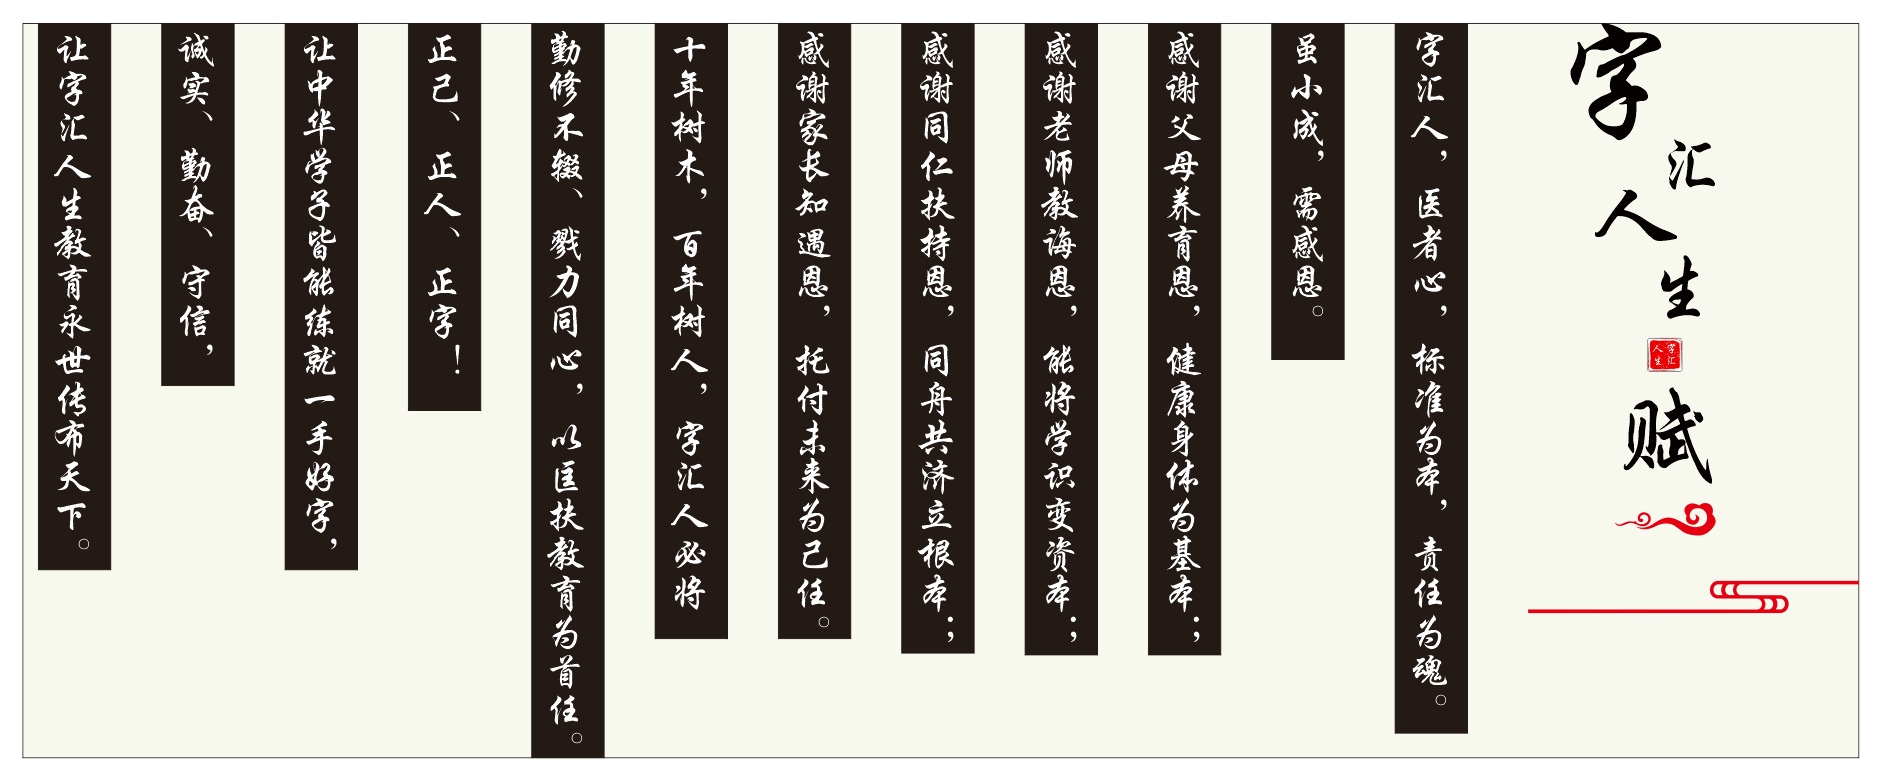 字汇人生
字汇
人生
赋
字汇人，医者心，标准为本，责任为魂。
虽小成，需感恩。
感谢父母养育恩，健康身体为基本；
感谢老师教诲恩，能将学识变资本；
感谢同仁扶持恩，同舟共济立根本；
感谢家长知遇恩，托付未来为己任。
十年树木，百年树人，字汇人必将
勤修不辍、戮力同心，以匡扶教育为首任。
正己、正人、正字！
让中华学子皆能练就一手好字，
诚实、勤奋、守信，
让字汇人生教育永世传布天下。